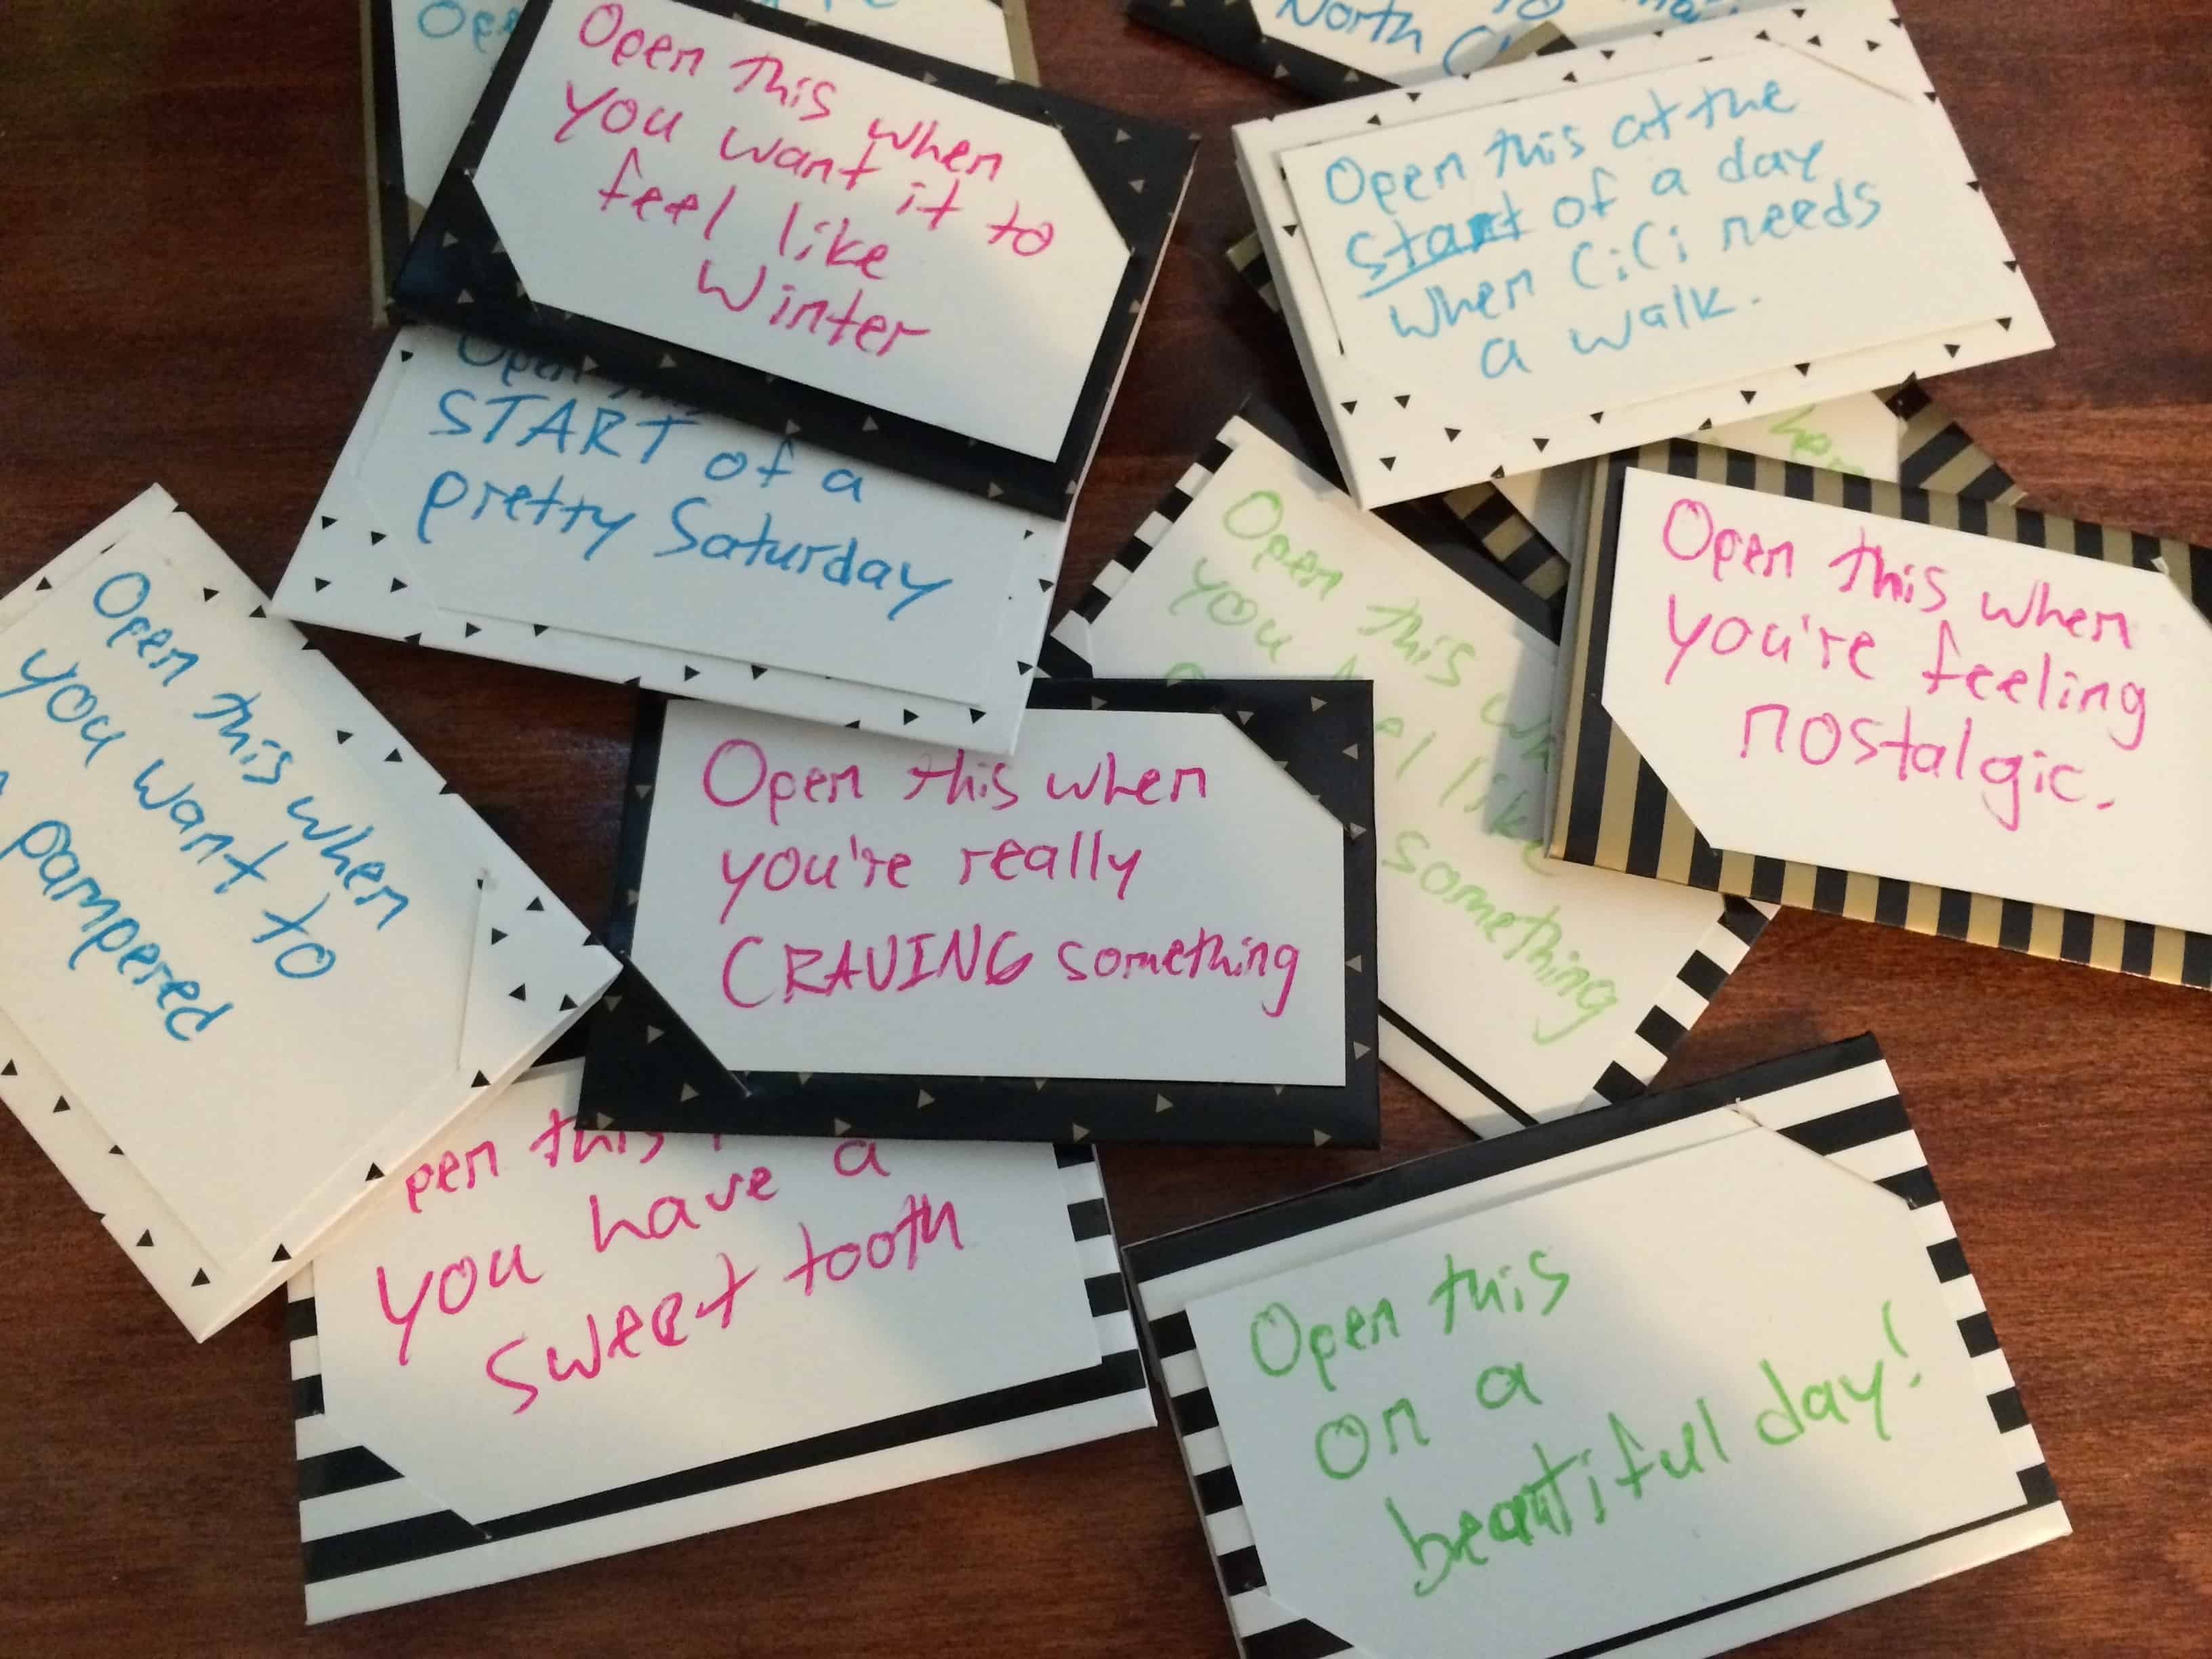 Open this when
you want it to
feel like
Winter
North
Open this at the
start of a day
when CiCi needs
a walk.
Open this
START of a
pretty Saturday
Open this when
you want to
pampered
Open this
you
like
something
Open this when
you're feeling
nostalgic.
Open this when
you're really
CRAVING something
pen this
you have a
sweet tooth
Open this
on a
beautiful day!